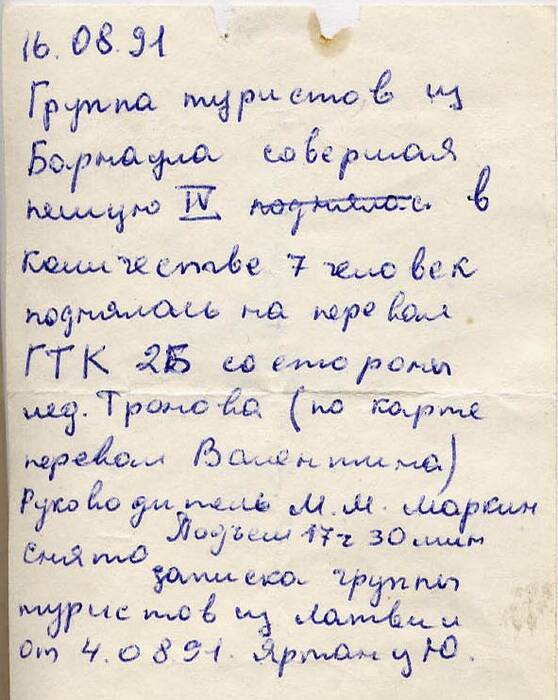 16.08.91
Группа туристов из
Барнаула совершая
пешую IV поднялась в
количестве 7 человек
поднялась на перевал
ГТК 2Б со стороны
лед. Тронова (по карте
перевал Валентина)
Руководитель М.М. Маркин
Подъем 17ч 30 мин
Снято записка группы
туристов из Латвии
от 4.0891. Ярман у Ю.